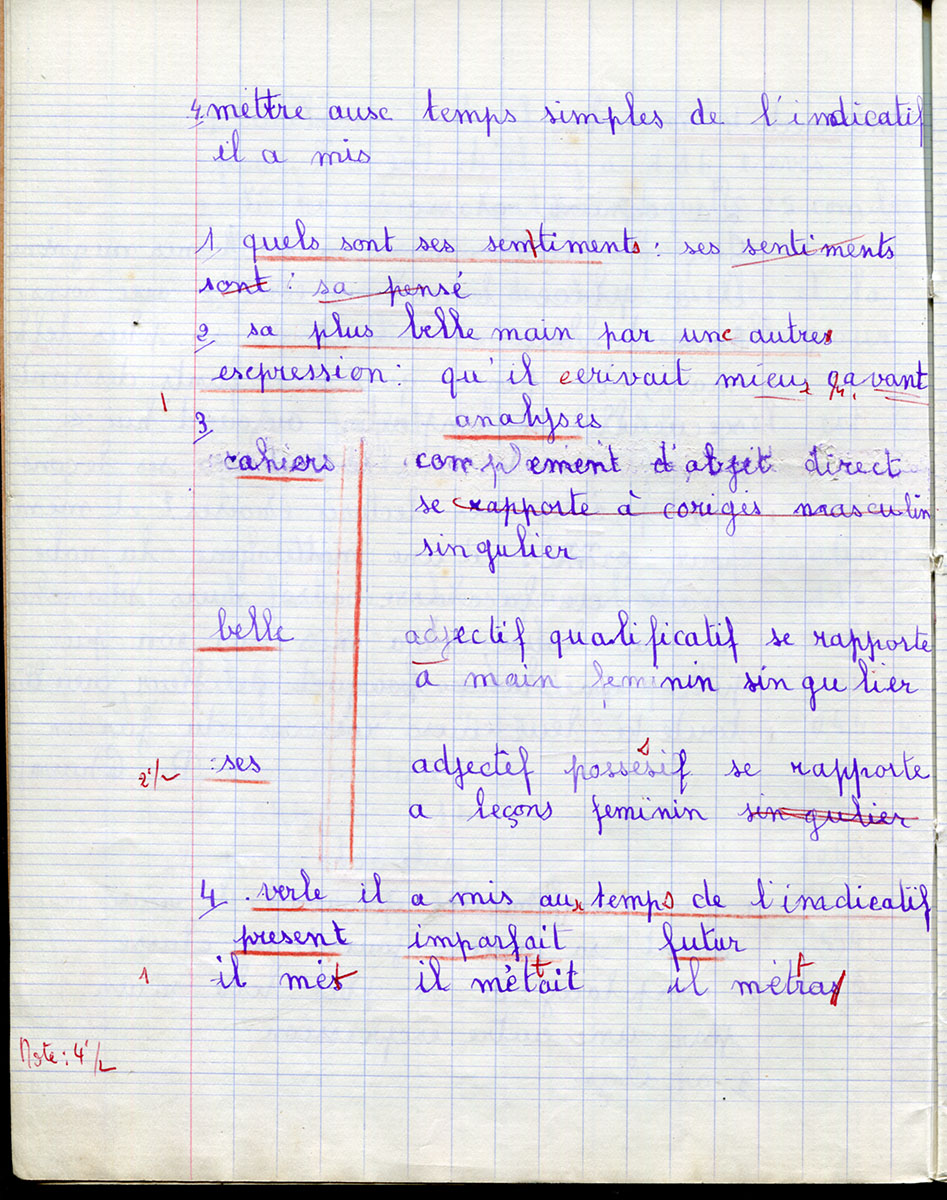 4. mèttre ausc temps simples de l'indicatif
il a mis
1 quels sont ses sentiments : ses sentiments
sont : sa pensé
2 sa plus belle main par une autres
escpression : qu'il ecrivait mieux qavant
1
3 analyses
cahiers complement d'objet direct
se rapporte à corigés masculin
singulier
belle adjectif qualificatif se rapporte
a main feminin singulier
2 1/2
ses adjectéf possésif se rapporte
s
a leçons feminin singulier
4 verbe il a mis aux temps de l'indicatif
present imparfait futur
1
il mèt il mèttait il mèttra
Note : 4 1/2